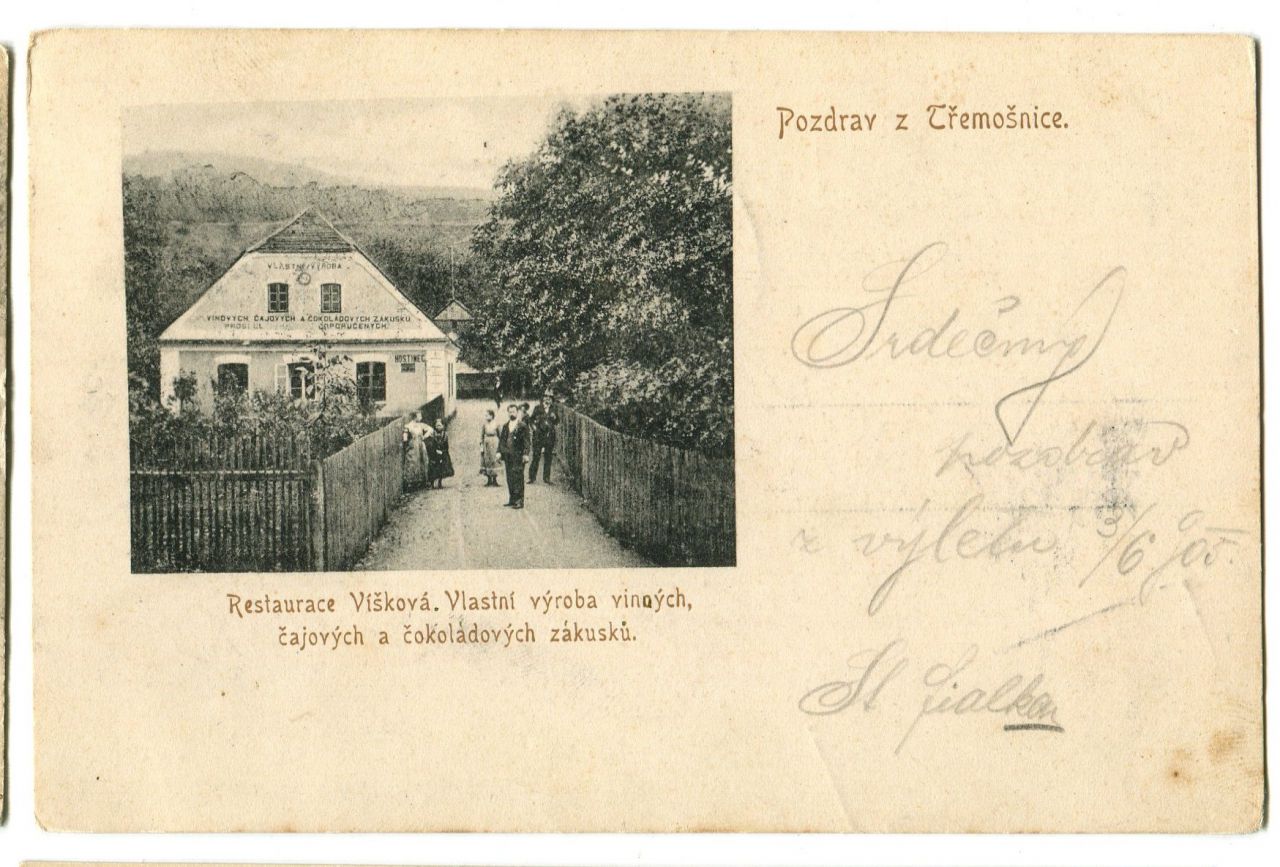 Pozdrav z Třemošnice.
VLASTNÍ VÝROBA
VINOVÝCH, ČAJOVÝCH A ČOKOLÁDOVÝCH ZÁKUSKŮ
ODPORUČENÝCH.
HOSTINEC
Restaurace Víšková. Vlastní výroba vinných,
čajových a čokoládových zákusků.
Srdečný
pozdrav
z výletu 3/6 905.
St. Fialka